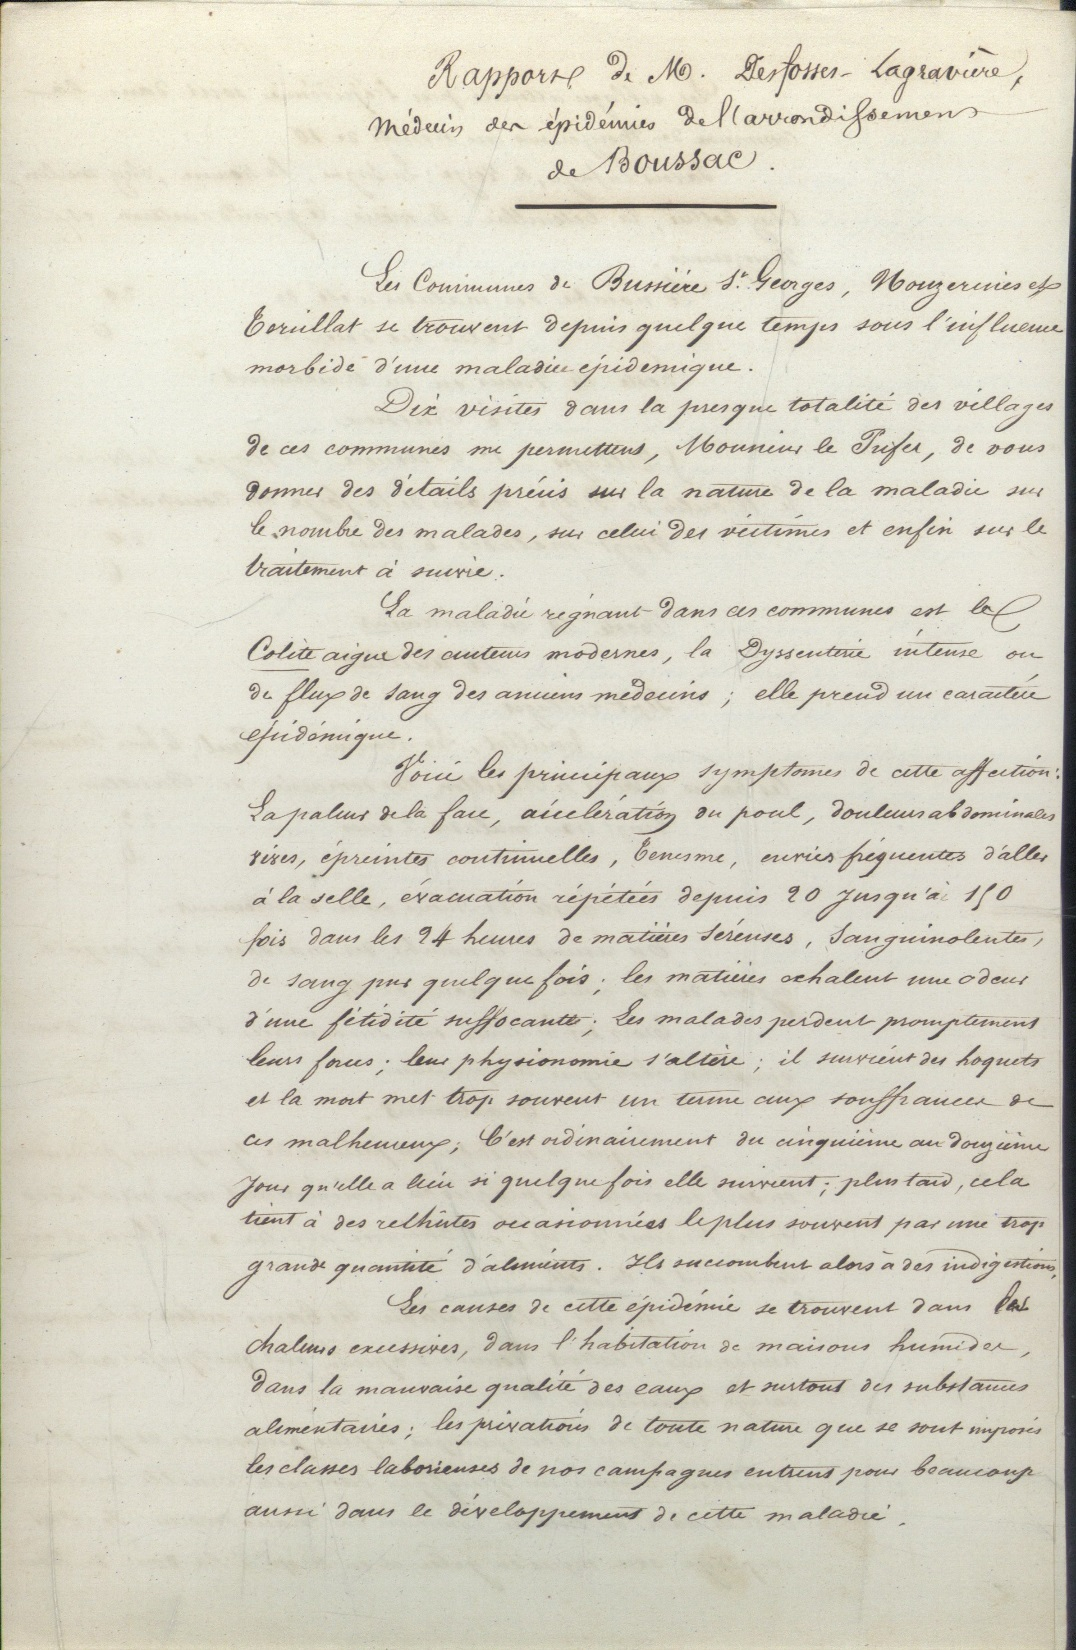 Rapport de M. Desfosses-Lagravière,
Médecin des épidémies de l'arrondissement
de Boussac.
Les Communes de Bussière St. Georges, Nouzerines et
se trouvent depuis quelque temps sous l'influence
morbide d'une maladie épidemique.
Dix visites dans la presque totalité des villages
de ces communes me permettent, Monsieur le Préfet, de vous
donner des détails précis sur la nature de la maladie sur
le nombre des malades, sur celui des victimes et enfin sur le
traitement à suivre.
La maladie régnant dans ces communes est la
Colite aigue des auteurs modernes, la Dyssenterie intense ou
de flux de sang des anciens medecins ; elle prend un caractère
épidémique.
Voici les principaux symptomes de cette affection :
La paleur de la face, accelération du poul, douleurs abdominales
vives, épreintes continuelles, Tenesme, envies fréquentes d'aller
à la selle, évacuation répétées depuis 20 jusqu'à 150
fois dans les 24 heures de matières séreuses, sanguinolentes,
de sang pur quelque fois ; les matières exhalent une odeur
d'une fétidité suffocante ; Les malades perdent promptement
leurs forces ; leur physionomie s'altère ; il survient des hoquets
et la mort met trop souvent un terme aux souffrances de
ces malheureux ; C'est ordinairement du cinquième au douzième
jour qu'elle a lieu si quelque fois elle survient ; plus tard, cela
tient à des rechûtes occasionnées le plus souvent par une trop
grande quantité d'aliments. Ils succombent alors à des indigestions,
Les causes de cette épidémie se trouvent dans les
chaleurs excessives, dans l'habitation de maisons humides,
dans la mauvaise qualité des eaux et surtout des substances
alimentaires ; les privations de toute nature que se sont imposés
les classes laborieuses de nos campagnes entrent pour beaucoup
aussi dans le développement de cette maladie.